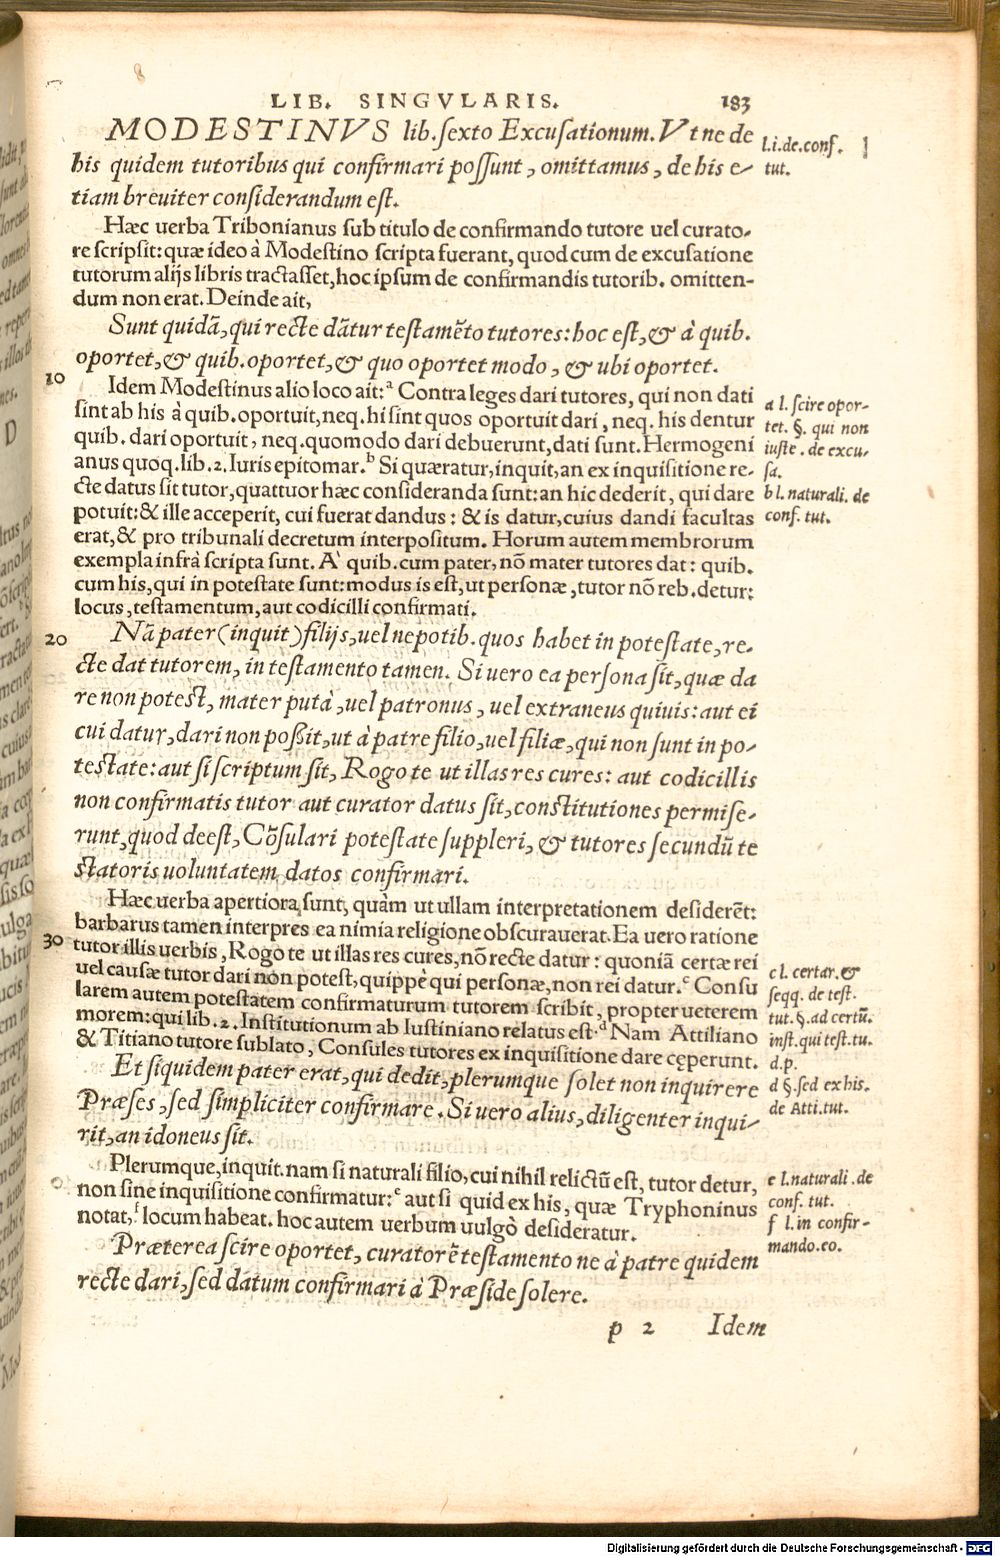 LIB. SINGVLARIS. 183
MODESTINVS lib. sexto Excusationum. Vt ne de
his quidem tutoribus qui confirmari possunt, omittamus, de his e-
tiam breuiter considerandum est.
l.i.de.conf.
tut.
Hæc uerba Tribonianus sub titulo de confirmando tutore uel curato-
re scripsit: quæ ideo à Modestino scripta fuerant, quod cum de excusatione
tutorum alijs libris tractasset, hoc ipsum de confirmandis tutorib. omitten-
dum non erat. Deinde ait,
Sunt quidā, qui recte dātur testamēto tutores: hoc est, & à quib.
oportet, & quib. oportet, & quo oportet modo, & ubi oportet.
10
Idem Modestinus alio loco ait:ᵃ Contra leges dari tutores, qui non dati
sint ab his à quib. oportuit, neq. hi sint quos oportuit dari, neq. his dentur
quib. dari oportuit, neq. quomodo dari debuerunt, dati sunt. Hermogeni
anus quoq. lib. 2. Iuris epitomar.ᵇ Si quæratur, inquit, an ex inquisitione re-
cte datus sit tutor, quattuor hæc consideranda sunt: an hic dederit, qui dare
potuit: & ille acceperit, cui fuerat dandus: & is datur, cuius dandi facultas
erat, & pro tribunali decretum interpositum. Horum autem membrorum
exempla infrà scripta sunt. A' quib. cum pater, nō mater tutores dat: quib.
cum his, qui in potestate sunt: modus is est, ut personæ, tutor nō reb. detur:
locus, testamentum, aut codicilli confirmati.
a l. scire opor-
tet. §. qui non
iuste. de excu-
sa.
b l. naturali. de
conf. tut.
20
Nā pater (inquit) filijs, uel nepotib. quos habet in potestate, re-
cte dat tutorem, in testamento tamen. Si uero ea persona sit, quæ da
re non potest, mater putà, uel patronus, uel extraneus quiuis: aut ei
cui datur, dari non possit, ut à patre filio, uel filiæ, qui non sunt in po-
testate: aut si scriptum sit, Rogo te ut illas res cures: aut codicillis
non confirmatis tutor aut curator datus sit, constitutiones permise-
runt, quod deest, Cōsulari potestate suppleri, & tutores secundū te
statoris uoluntatem datos confirmari.
Hæc uerba apertiora sunt, quàm ut ullam interpretationem desiderēt:
barbarus tamen interpres ea nimia religione obscurauerat. Ea uero ratione
30
tutor illis uerbis, Rogo te ut illas res cures, nō recte datur: quoniā certæ rei
uel causæ tutor dari non potest, quippè qui personæ, non rei datur.ᶜ Consu
larem autem potestatem confirmaturum tutorem scribit, propter ueterem
morem: qui lib. 2. Institutionum ab Iustiniano relatus est.ᵈ Nam Attiliano
& Titiano tutore sublato, Consules tutores ex inquisitione dare cęperunt.
c l. certar. &
seqq. de test.
tut. §. ad certū.
inst. qui test. tu.
d.p.
d §. sed ex his.
de Atti.tut.
Et siquidem pater erat, qui dedit, plerumque solet non inquirere
Præses, sed simpliciter confirmare. Si uero alius, diligenter inqui-
rit, an idoneus sit.
Plerumque, inquit. nam si naturali filio, cui nihil relictū est, tutor detur,
non sine inquisitione confirmatur:ᵉ aut si quid ex his, quæ Tryphoninus
notat,ᶠ locum habeat. hoc autem uerbum uulgò desideratur.
e l. naturali. de
conf. tut.
f l. in confir-
mando. eo.
Præterea scire oportet, curatorē testamento ne à patre quidem
recte dari, sed datum confirmari à Præside solere.
p 2 Idem
Digitalisierung gefördert durch die Deutsche Forschungsgemeinschaft - DFG